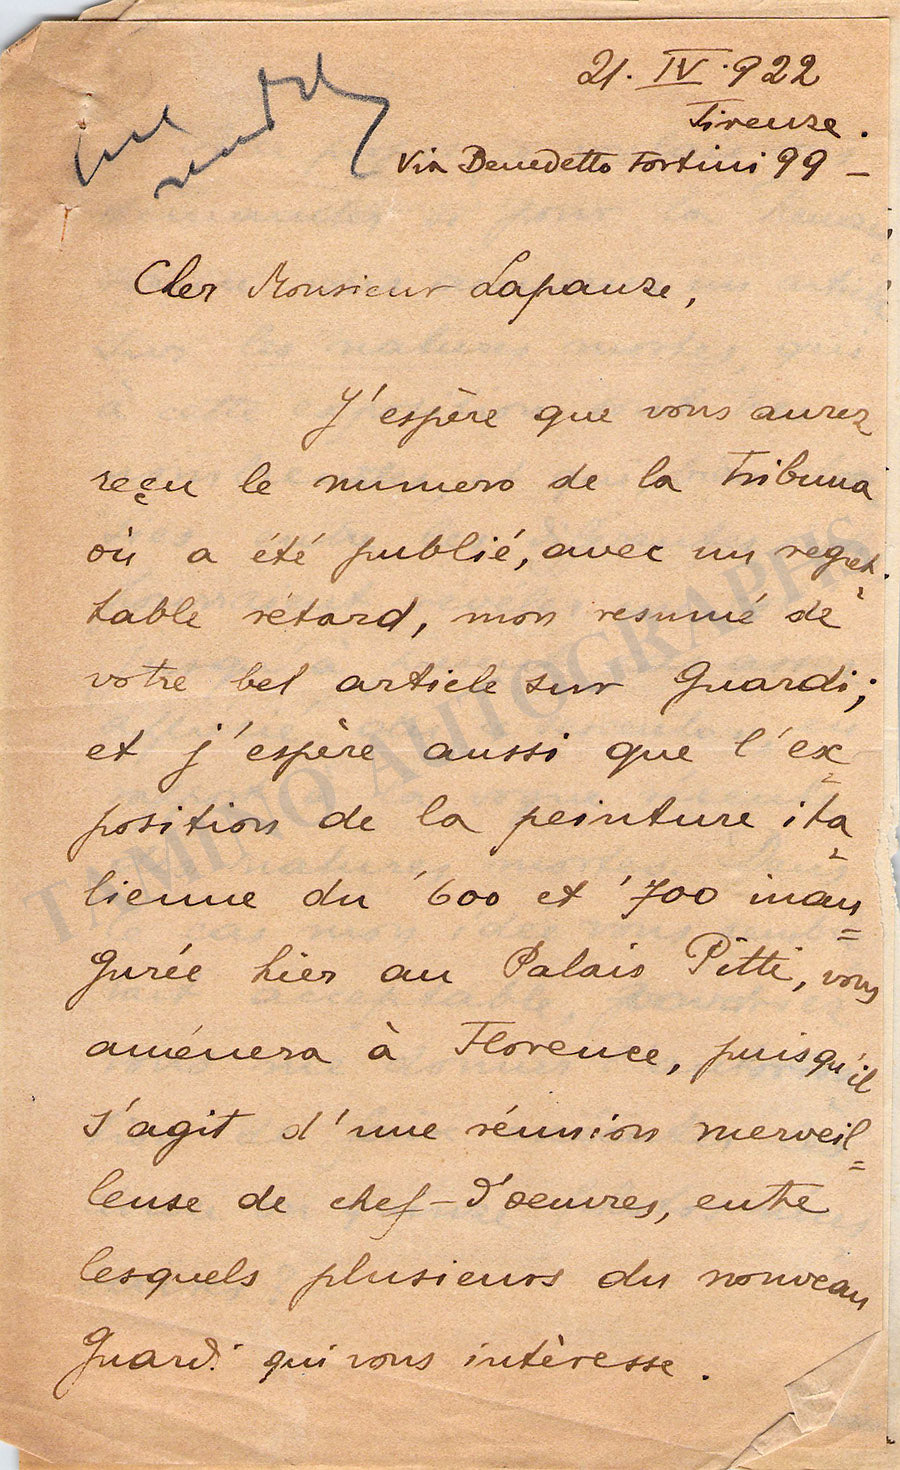 21. IV. 922
Firenze.
Via Benedetto Fortini 99 –
Cher Monsieur Lapauze,
J'espère que vous aurez
reçu le numero de la Tribuna
où a été publié, avec un regret-
table rétard, mon resumé de
votre bel article sur Guardi;
et j'espère aussi que l'ex-
position de la peinture ita-
lienne du '600 et '700 inau=
gurée hier au Palais Pitti, vous
aménera à Florence, puisqu'il
s'agit d'une réunion merveil=
leuse de chef-d'oeuvres, entre
lesquels plusieurs du nouveau
Guardi qui vous intèresse.
TAMINO AUTOGRAPHS